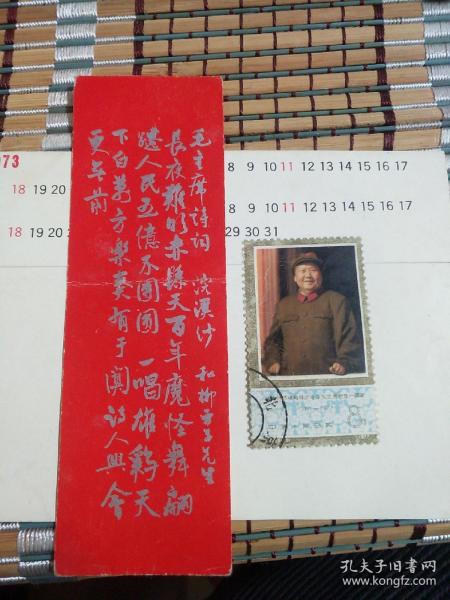 973
8 9 10 11 12 13 14 15 16 17
18 19 20
8 9 10 11 12 13 14 15 16 17
18 19 20
29 30 31
毛主席詩詞 浣溪沙 和柳亞子先生
長夜難明赤縣天百年魔怪舞翩
躚人民五億不團圓 一唱雄鷄天
下白萬方樂奏有于闐詩人興會
更無前
8
北
孔夫子旧书网
www.kongfz.com